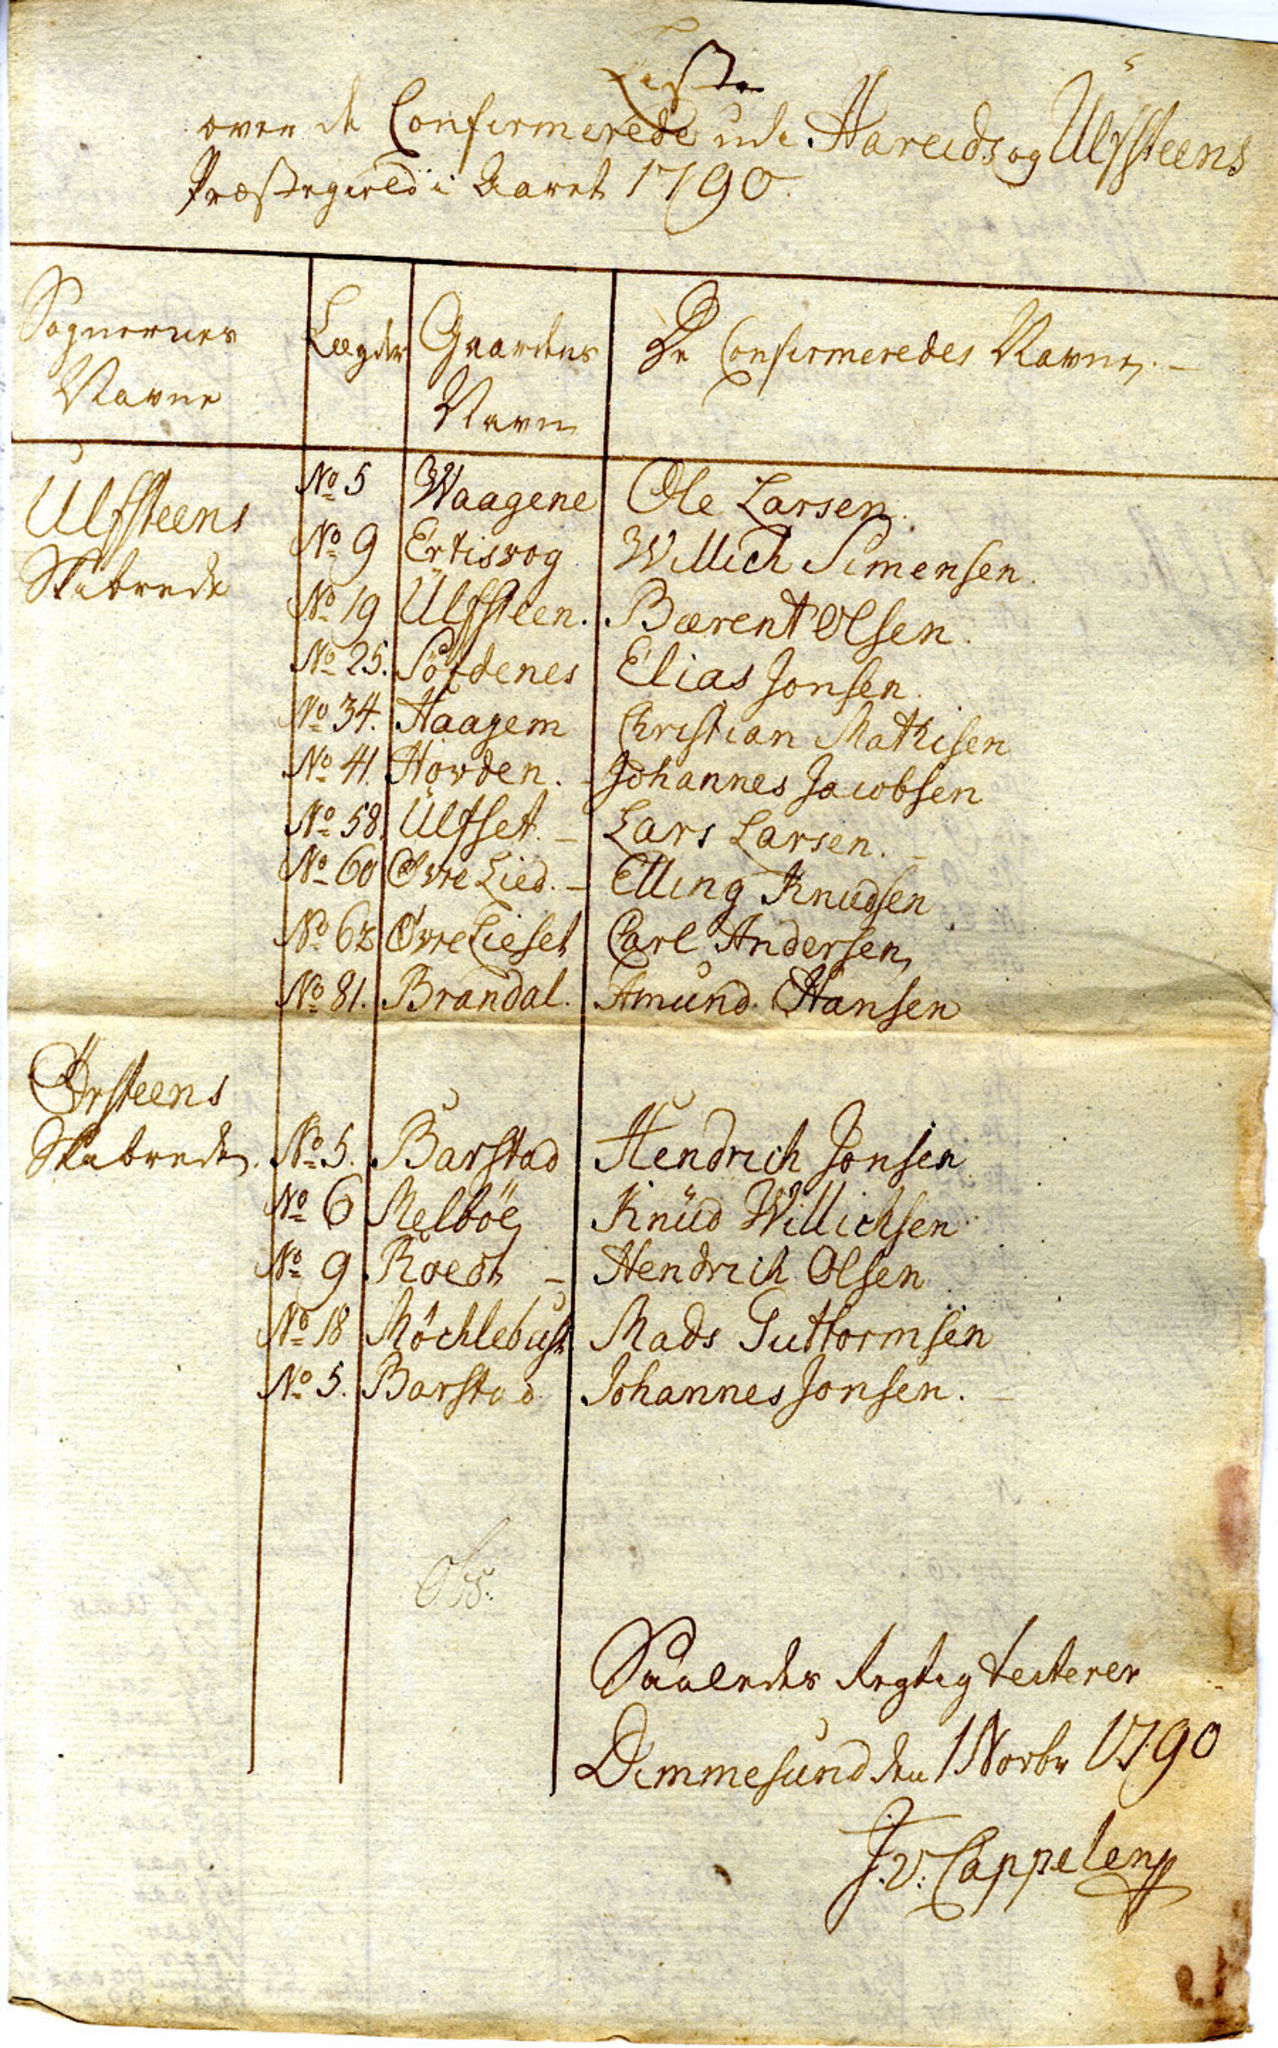 Liste
over de Confirmerede udi Hareids og Ulfsteens
Præstegield i Aaret 1790.
Sognernes Navne | Lægder | Gaardens Navn | De Confirmeredes Navne. -
Ulfsteens Skibrede | No 5 | Waagene | Ole Larsen.
No 9 | Ertisvog | Willich Simensen.
No 19 | Ulfsteen. | Bærent Olsen.
No 25. | | Elias Jonsen.
No 34. | Haagem | Christian Mathisen
No 41. | Hovden. - | Johannes Jacobsen
No 58. | Ulfset. - | Lars Larsen. -
No 60 | Øvre Lied. - | Elling Knudsen
No 62 | Øvre Lieset | Carl Andersen,
No 81. | Brandal. | Amund Hansen
Ørsteens
Skibrede. | No 5. | Barstad | Hendrich Jonsen
No 6 | Melböe | Knud Willichsen
No 9 | | Hendrich Olsen
No 18 | Möchlebust | Mads Guttormsen
No 5. | Barstad | Johannes Jonsen. -
Obs:
Saaledes Rigtig testerer
Dimmesund den 1 Novbr 1790
J. v. Cappelen